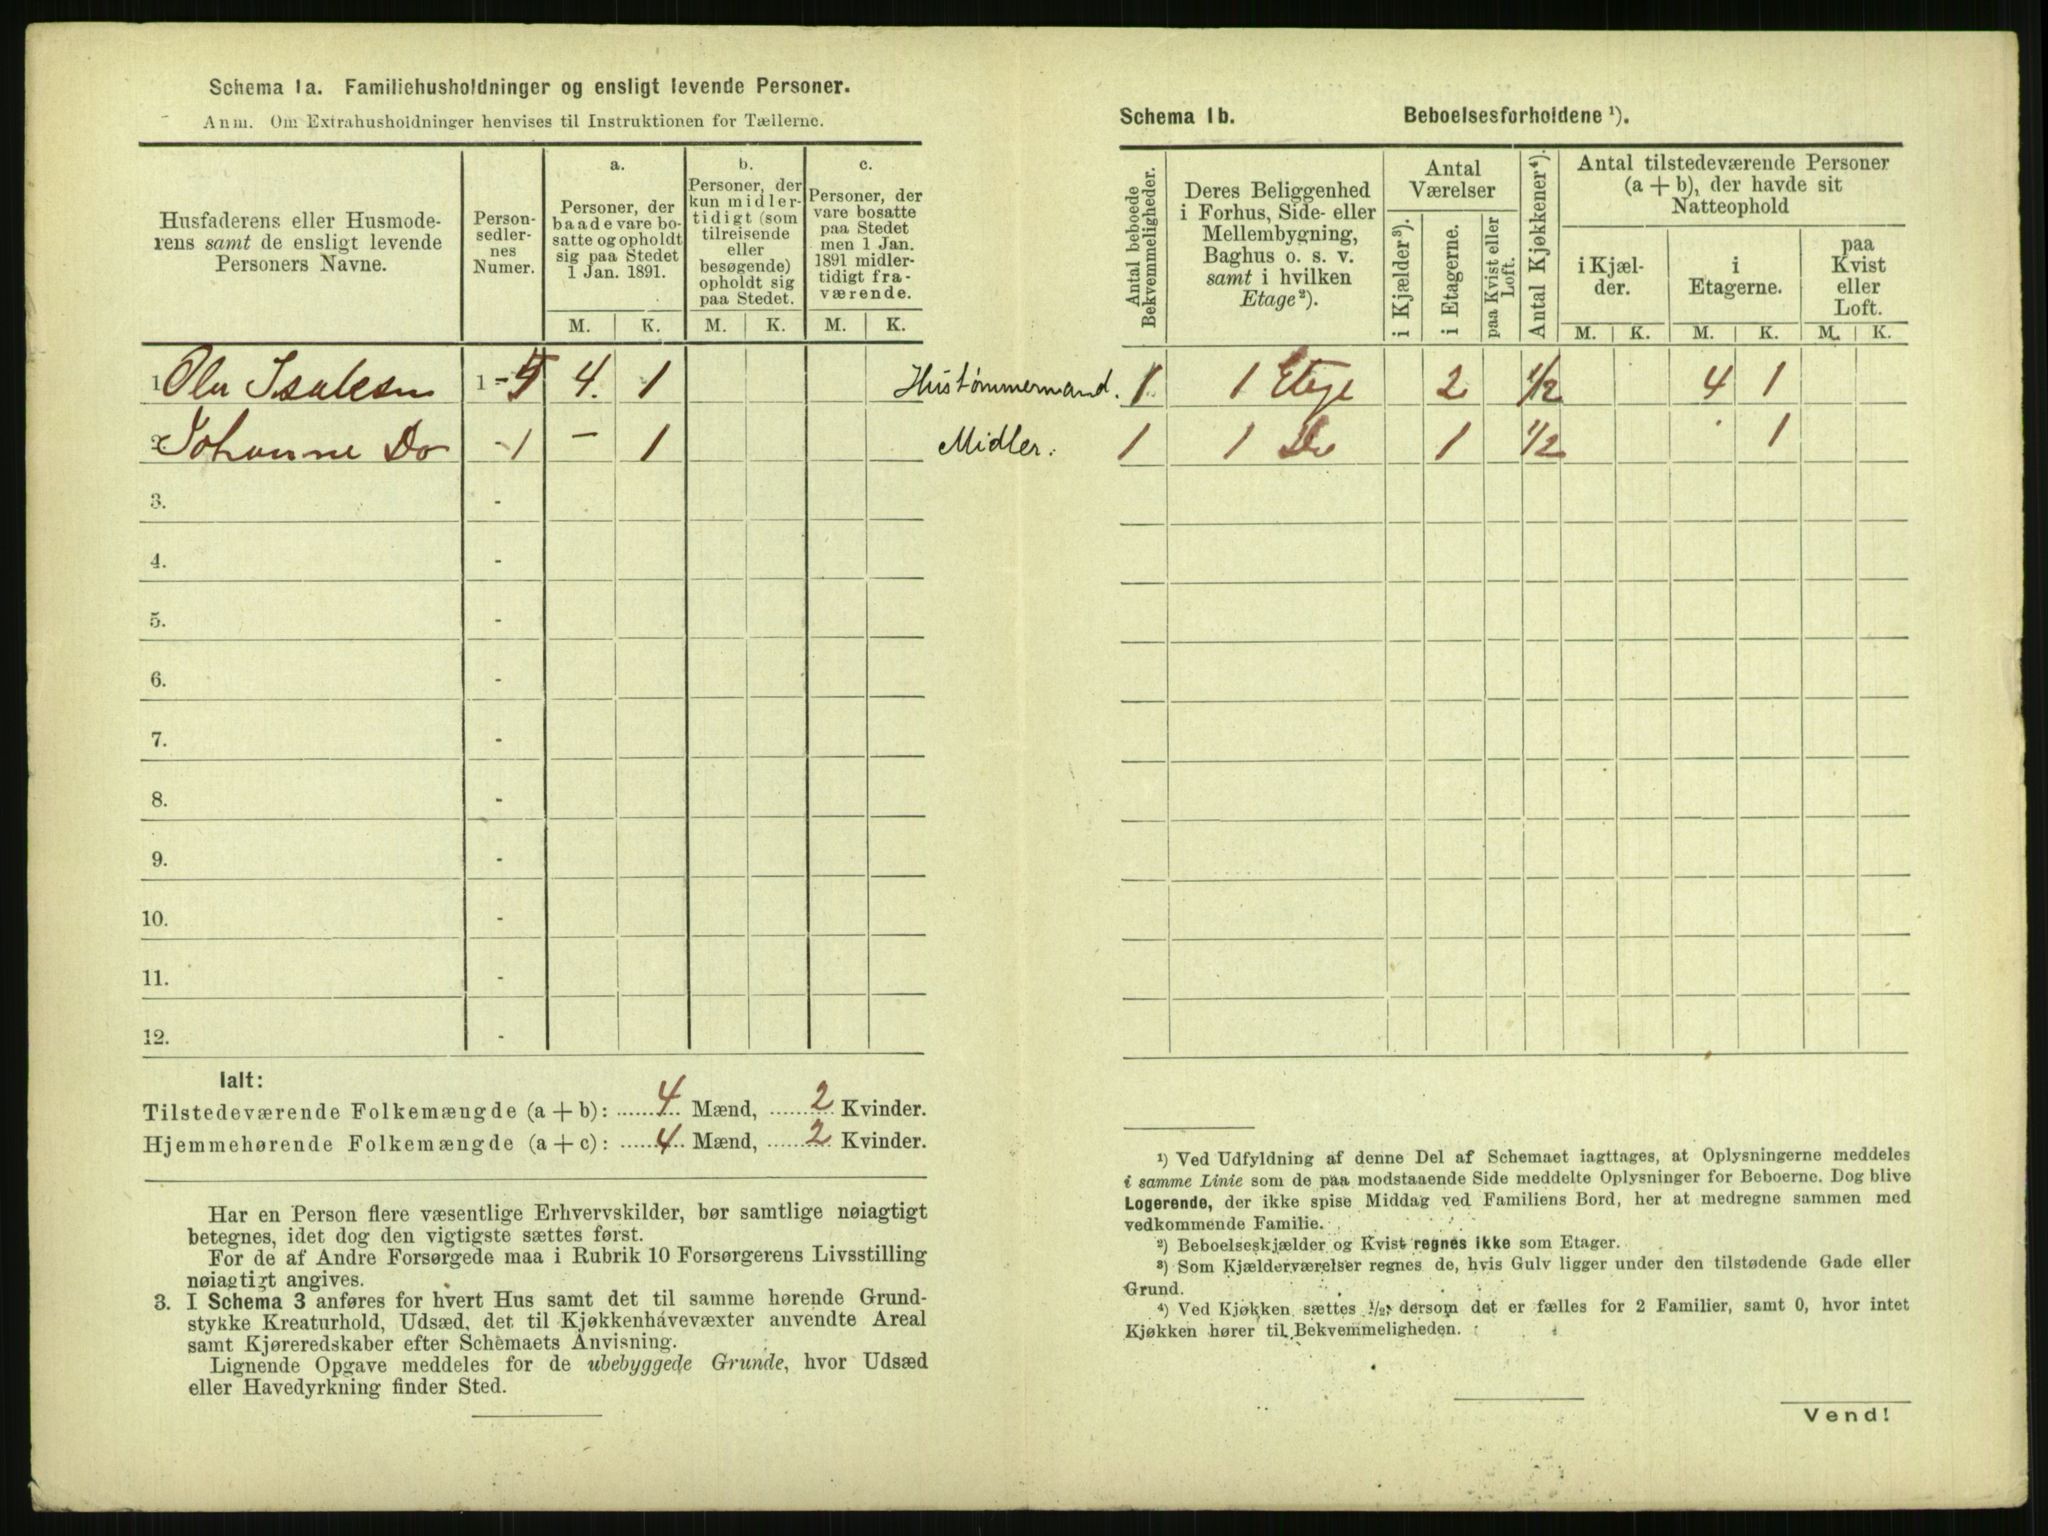 Schema 1a. Familiehusholdninger og ensligt levende Personer.
Anm. Om Extrahusholdninger henvises til Instruktionen for Tællerne.
Husfaderens eller Husmode-
rens samt de ensligt levende
Personers Navne.
Person-
sedler-
nes
Numer.
a.
Personer, der
baade vare bo-
satte og opholdt
sig paa Stedet
1 Jan. 1891.
b.
Personer, der
kun midler-
tidigt (som
tilreisende
eller
besøgende)
opholdt sig
paa Stedet.
c.
Personer, der
vare bosatte
paa Stedet
men 1 Jan.
1891 midler-
tidigt fra-
værende.
M. K. M. K. M. K.
1. Ola Isaksen 1-5 4. 1
2. Johanne Do -1 - 1
3. -
4. -
5. -
6. -
7. -
8. -
9. -
10. -
11. -
12. -
Ialt:
Tilstedeværende Folkemængde (a + b): 4 Mænd, 2 Kvinder.
Hjemmehørende Folkemængde (a + c): 4 Mænd, 2 Kvinder.
Har en Person flere væsentlige Erhvervskilder, bør samtlige nøiagtigt
betegnes, idet dog den vigtigste sættes først.
For de af Andre Forsørgede maa i Rubrik 10 Forsørgerens Livsstilling
nøiagtigt angives.
3. I Schema 3 anføres for hvert Hus samt det til samme hørende Grund-
stykke Kreaturhold, Udsæd, det til Kjøkkenhavevæxter anvendte Areal
samt Kjøreredskaber efter Schemaets Anvisning.
Lignende Opgave meddeles for de ubebyggede Grunde, hvor Udsæd
eller Havedyrkning finder Sted.
Schema 1b. Beboelsesforholdene ¹).
Antal beboede
Bekvemmeligheder.
Deres Beliggenhed
i Forhus, Side- eller
Mellembygning,
Baghus o. s. v.
samt i hvilken
Etage²).
Antal
Værelser
i Kjælder³).
i Etagerne.
paa Kvist eller
Loft.
Antal Kjøkkener⁴).
Antal tilstedeværende Personer
(a + b), der havde sit
Natteophold
i Kjæl-
der.
i
Etagerne.
paa
Kvist
eller
Loft.
M. K. M. K. M. K.
Hustømmermand. 1 1 Etage 2 1/2 4 1
Midler. 1 1 Do 1 1/2 1
¹) Ved Udfyldning af denne Del af Schemaet iagttages, at Oplysningerne meddeles
i samme Linie som de paa modstaaende Side meddelte Oplysninger for Beboerne. Dog blive
Logerende, der ikke spise Middag ved Familiens Bord, her at medregne sammen med
vedkommende Familie.
²) Beboelseskjælder og Kvist regnes ikke som Etager.
³) Som Kjælderværelser regnes de, hvis Gulv ligger under den tilstødende Gade eller
Grund.
⁴) Ved Kjøkken sættes 1/2, dersom det er fælles for 2 Familier, samt 0, hvor intet
Kjøkken hører til Bekvemmeligheden.
Vend!